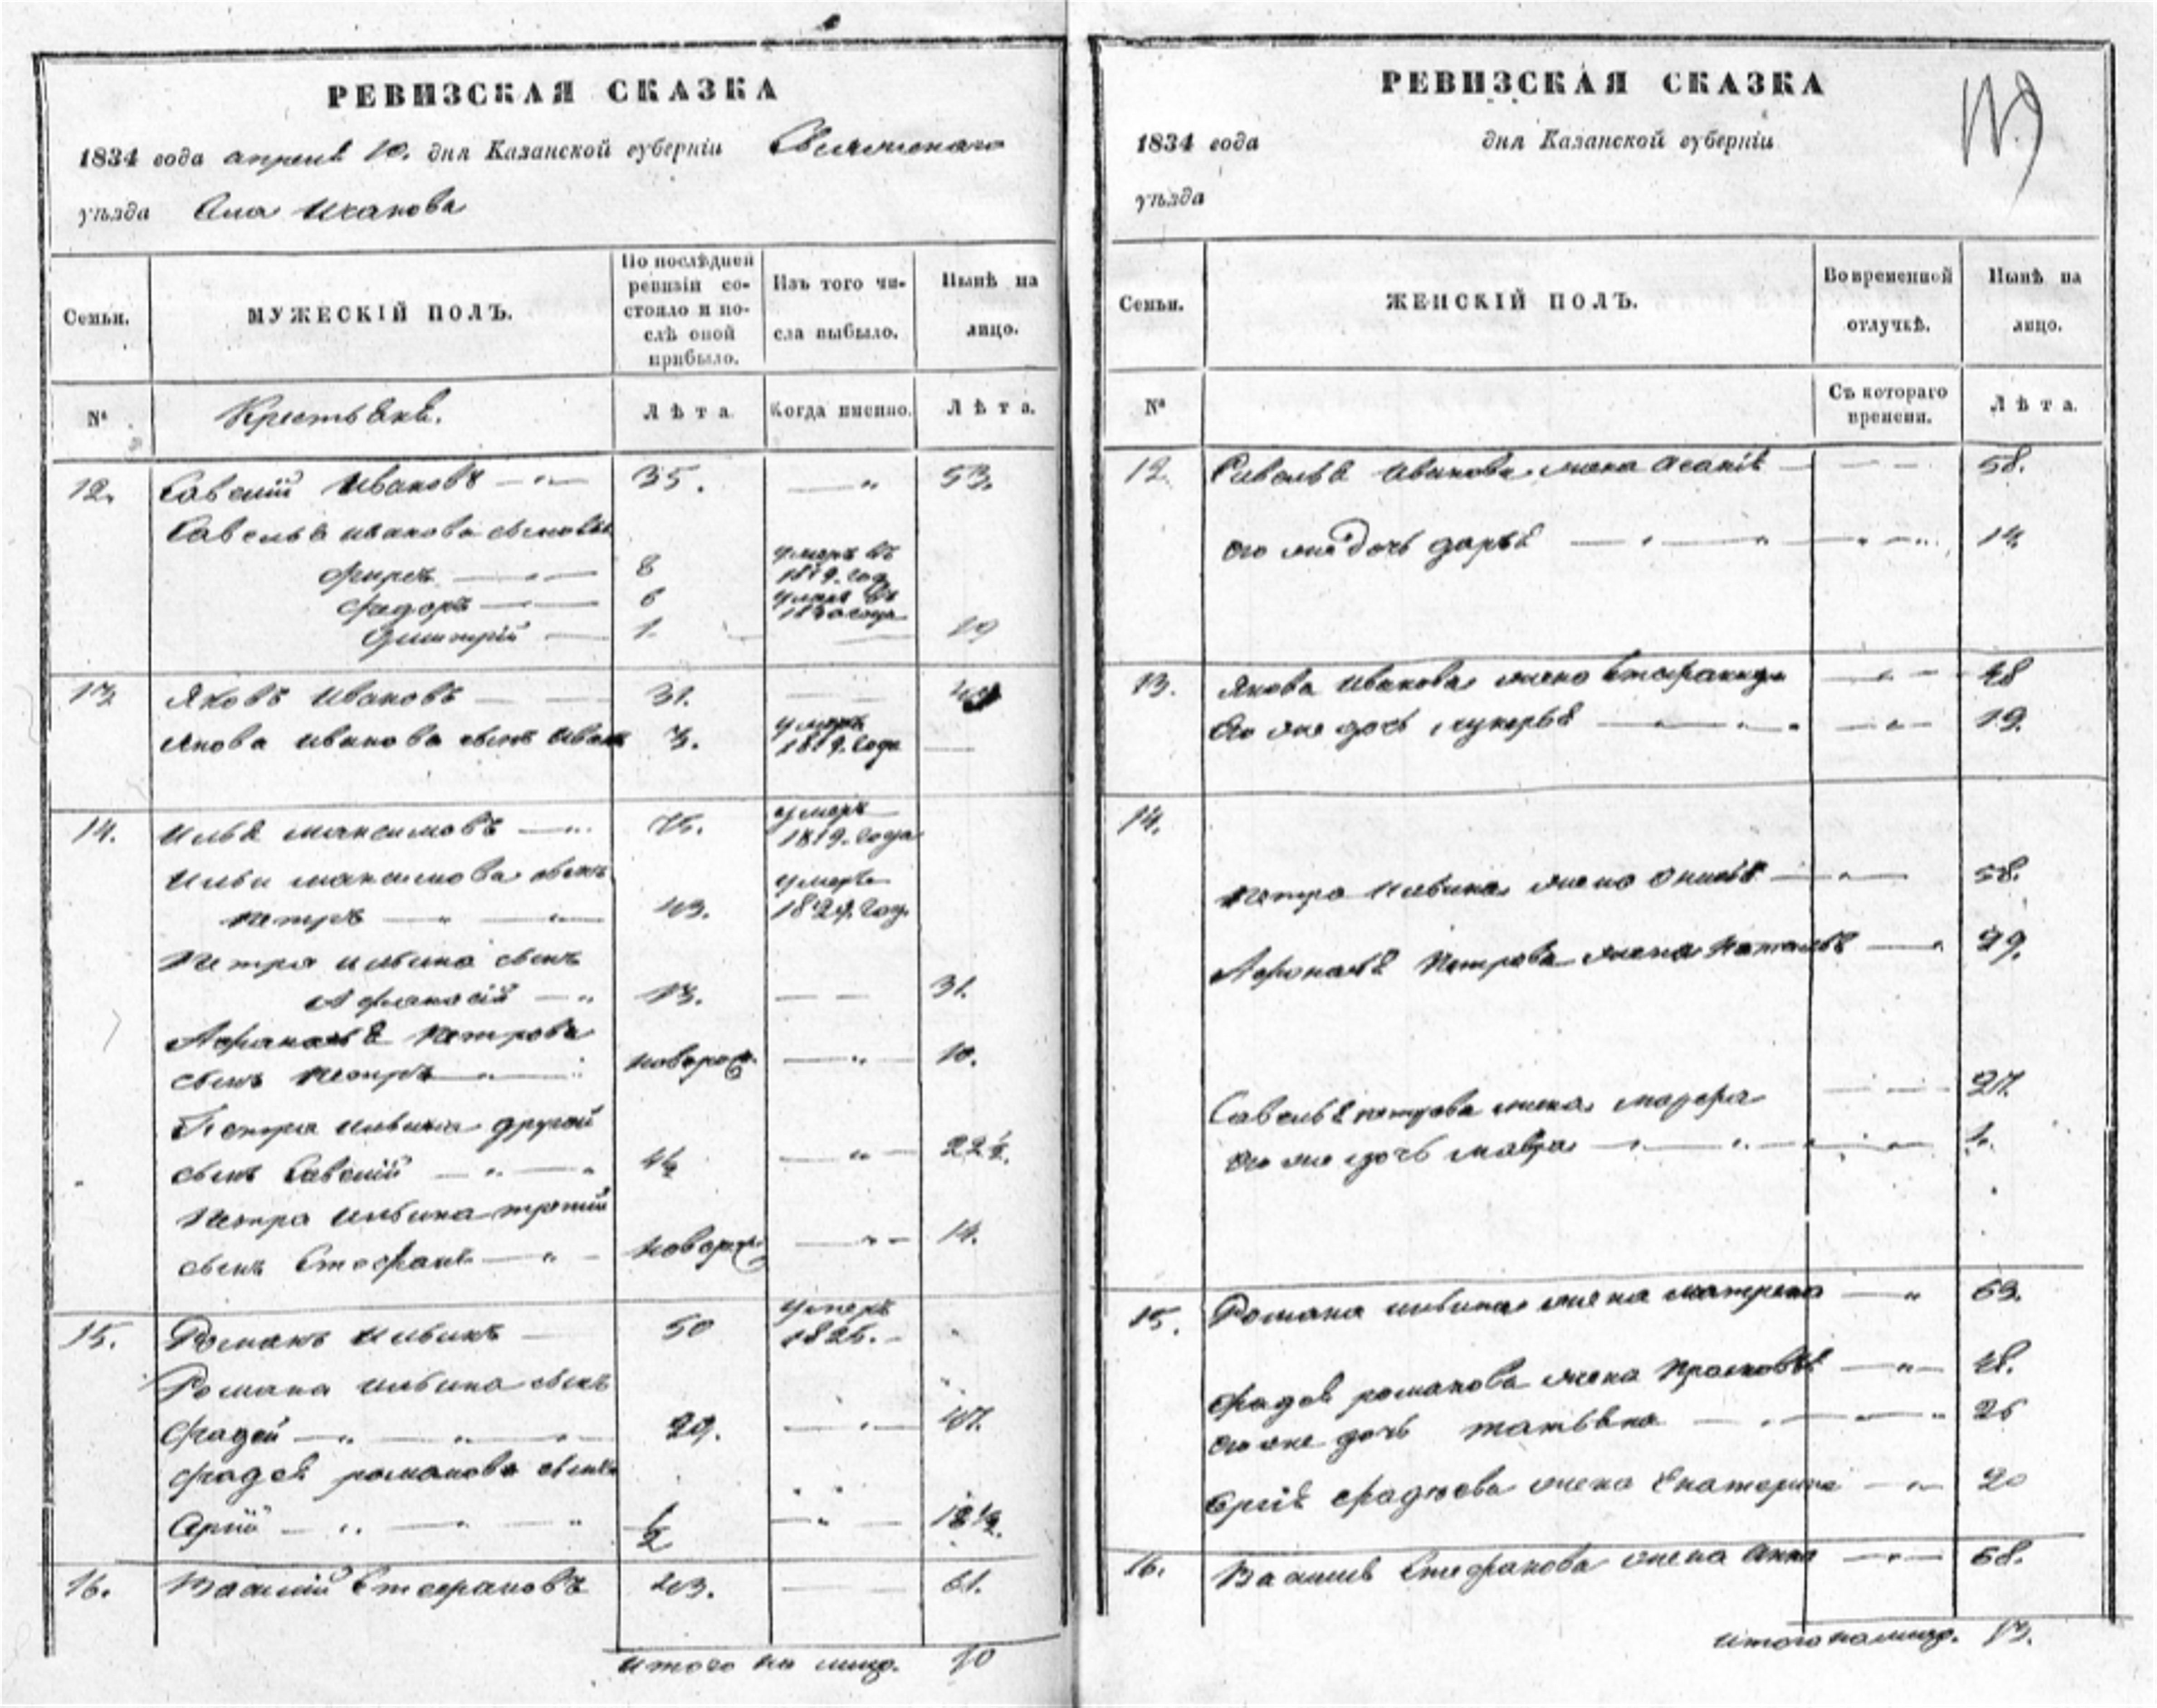 РЕВИЗСКАЯ СКАЗКА
1834 года апреля 10. дня Казанской губернiи
уѣзда Села
Семьи.
МУЖЕСКIЙ ПОЛЪ.
По послѣдней
ревизiи со-
стояло и по-
слѣ оной
прибыло.
Изъ того чи-
сла выбыло.
Нынѣ на
лицо.
№
Крестьяне.
Лѣта.
Когда именно.
Лѣта.
12. Савелiй Ивановъ 35. 53.
Савелья иванова сыновья
8 умеръ въ
1819. год
Федоръ 6 умеръ въ
1830 года
Дмитрiй 1. 19
13 Яковъ Ивановъ 31.
Якова иванова сынъ Иванъ 3. умеръ
1819. года
14. Илья максимовъ 75. умеръ
1819. года
Ильи максимова сынъ умеръ
петръ 43. год.
Петра ильина сынъ
Афанасiй 13. 31.
Афанасья Петрова
сынъ Петръ новорож. 10.
Петра ильина другой
сынъ Савелiй 4½ 22½.
Петра ильина третiй
сынъ Стефанъ новорож. 14.
15. Романъ ильинъ 50 умеръ
1825.
Романа ильина сынъ
Фадей 29. 47.
Фадея романова сынъ
½ 18½.
16. Василiй Стефановъ 43. 61.
итого на лицо. 10
РЕВИЗСКАЯ СКАЗКА
1834 года дня Казанской губернiи
уѣзда
Семьи.
ЖЕНСКIЙ ПОЛЪ.
Во временной
отлучкѣ.
Нынѣ на
лицо.
№
Съ котораго
времени.
Лѣта.
12. Савелья иванова жена 58.
его же дочь дарья 14.
13. Якова иванова жена Стефанида 48
Его же дочь лукерья 19.
14.
Петра ильина жена 58.
Афанасья Петрова жена Наталья 29.
Савелья петрова жена марфа 27.
его же дочь мавра 1.
15. Романа ильина жена матрена 69.
Фадея романова жена Прасковья 48.
его же дочь татьяна 25
фадеева жена Екатерина 20
16. Василья Стефанова жена Анна 68.
итого на лицо. 13.